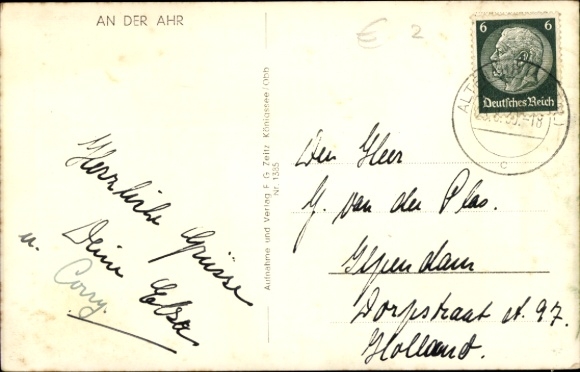 AN DER AHR
€ 2
6 6
Deutsches Reich
ALTE
-18
c
Herzliche Grüsse
Deine Elsa
u. Corry.
Aufnahme und Verlag F. G. Zeitz Königssee/Obb
Nr. 1385
Den Heer
G. van der Plas.
Ilpendam
Dorpstraat A. 97.
Holland.